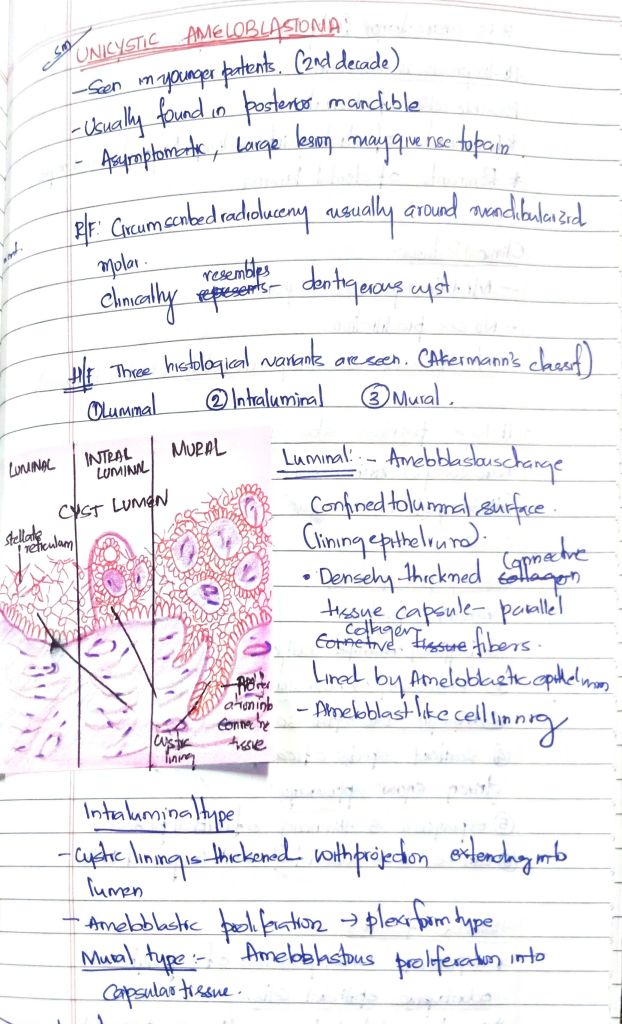 sm
UNICYSTIC AMELOBLASTOMA:
- Seen in younger patients. (2nd decade)
- Usually found in posterior mandible
- Asymptomatic, Large lesion may give rise to pain.
R/F: Circumscribed radioluceny usually around mandibular 3rd
molar.
resembles
Clinically represents dentigerous cyst.
H/F Three histological variants are seen. (Akermann's classif)
① Luminal ② Intraluminal ③ Mural.
LUMINAL
INTRAL
LUMINAL
MURAL
CYST LUMEN
stellate
reticulam
Prolifer
ation into
connective
tissue
cystic
lining
Luminal: - Ameloblastous change
Confined to luminal surface.
(lining epithelium).
• Densely thickned collagen Connective
tissue capsule - parallel
collagen
connetive tissue fibers.
Lined by Ameloblastic epithelium
- Ameloblast like cell linnig
Intraluminal type
- Cystic lining is thickened with projection extending into
lumen
- Ameloblastic proliferation → plexiform type
Mural type :- Ameloblastous proliferation into
capsular tissue.